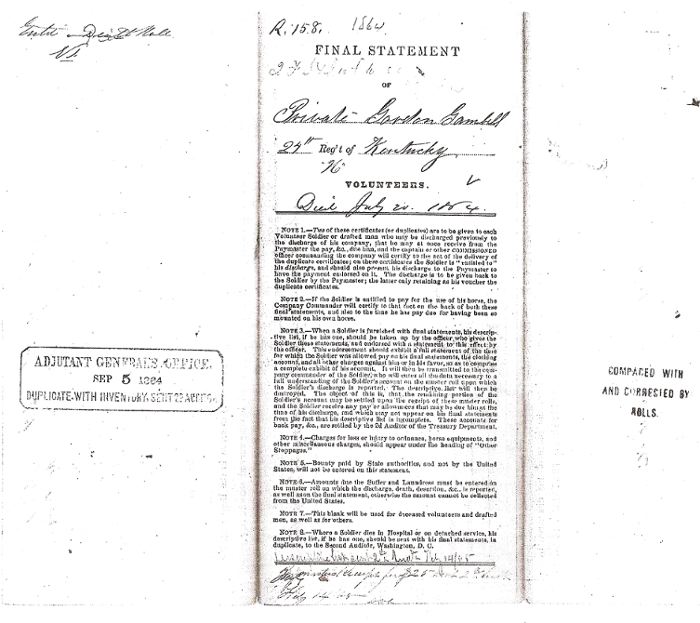 R. 158. 1864
FINAL STATEMENT
OF
Private Gordon Gambill
24" Reg't of Kentucky
"K"
VOLUNTEERS.
Died July 20. 1864.
NOTE 1.—Two of these certificates (or duplicates) are to be given to each
Volunteer Soldier or drafted man who may be discharged previously to
the discharge of his company, that he may at once receive from the
Paymaster the pay, &c., due him, and the captain or other COMMISSIONED
officer commanding the company will certify to the act of the delivery of
the duplicate certificates; on these certificates the Soldier is "entitled to"
his discharge, and should also present his discharge to the Paymaster to
have the payment endorsed on it. The discharge is to be given back
to the Soldier by the Paymaster; the latter only retaining as his voucher the
duplicate certificates.
NOTE 2.—If the Soldier is entitled to pay for the use of his horse, the
Company Commander will certify to that fact on the back of both these
final statements, and also to the time he has pay due for having been so
mounted on his own horse.
NOTE 3.—When a Soldier is furnished with final statements, his descrip-
tive list, if he has one, should be taken up by the officer who gives the
Soldier those statements, and endorsed with a statement to this effect by
the officer. This endorsement should exhibit a full statement of the time
for which the Soldier was allowed pay on his final statements, the clothing
account, and all other charges against him or in his favor, so as to comprise
a complete exhibit of his account. It will then be transmitted to the com-
pany commander of the Soldier, who will enter all the data necessary to a
full understanding of the Soldier's account on the muster roll upon which
the Soldier's discharge is reported. The descriptive list will then be
destroyed. The object of this is, that the remaining portion of the
Soldier's account may be settled upon the receipt of these muster rolls,
and the Soldier receive any pay or allowances that may be due him at the
time of his discharge, and which may not appear on his final statements
from the fact that his descriptive list is incomplete. These accounts for
back pay, &c., are settled by the 2d Auditor of the Treasury Department.
NOTE 4.—Charges for loss or injury to ordnance, horse equipments, and
other miscellaneous charges, should appear under the heading of "Other
Stoppages."
NOTE 5.—Bounty paid by State authorities, and not by the United
States, will not be entered on this statement.
NOTE 6.—Amounts due the Sutler and Laundress must be entered on
the muster roll on which the discharge, death, desertion, &c., is reported,
as well as on the final statement, otherwise the amount cannot be collected
from the United States.
NOTE 7.—This blank will be used for deceased volunteers and drafted
men, as well as for others.
NOTE 8.—Where a Soldier dies in Hospital or on detached service, his
descriptive list, if he has one, should be sent with his final statements, in
duplicate, to the Second Auditor, Washington, D. C.
ADJUTANT GENERAL'S OFFICE.
SEP 5 1864
DUPLICATE WITH INVENTORY SENT 2D AUDITOR
COMPARED WITH
AND CORRECTED BY
ROLLS.